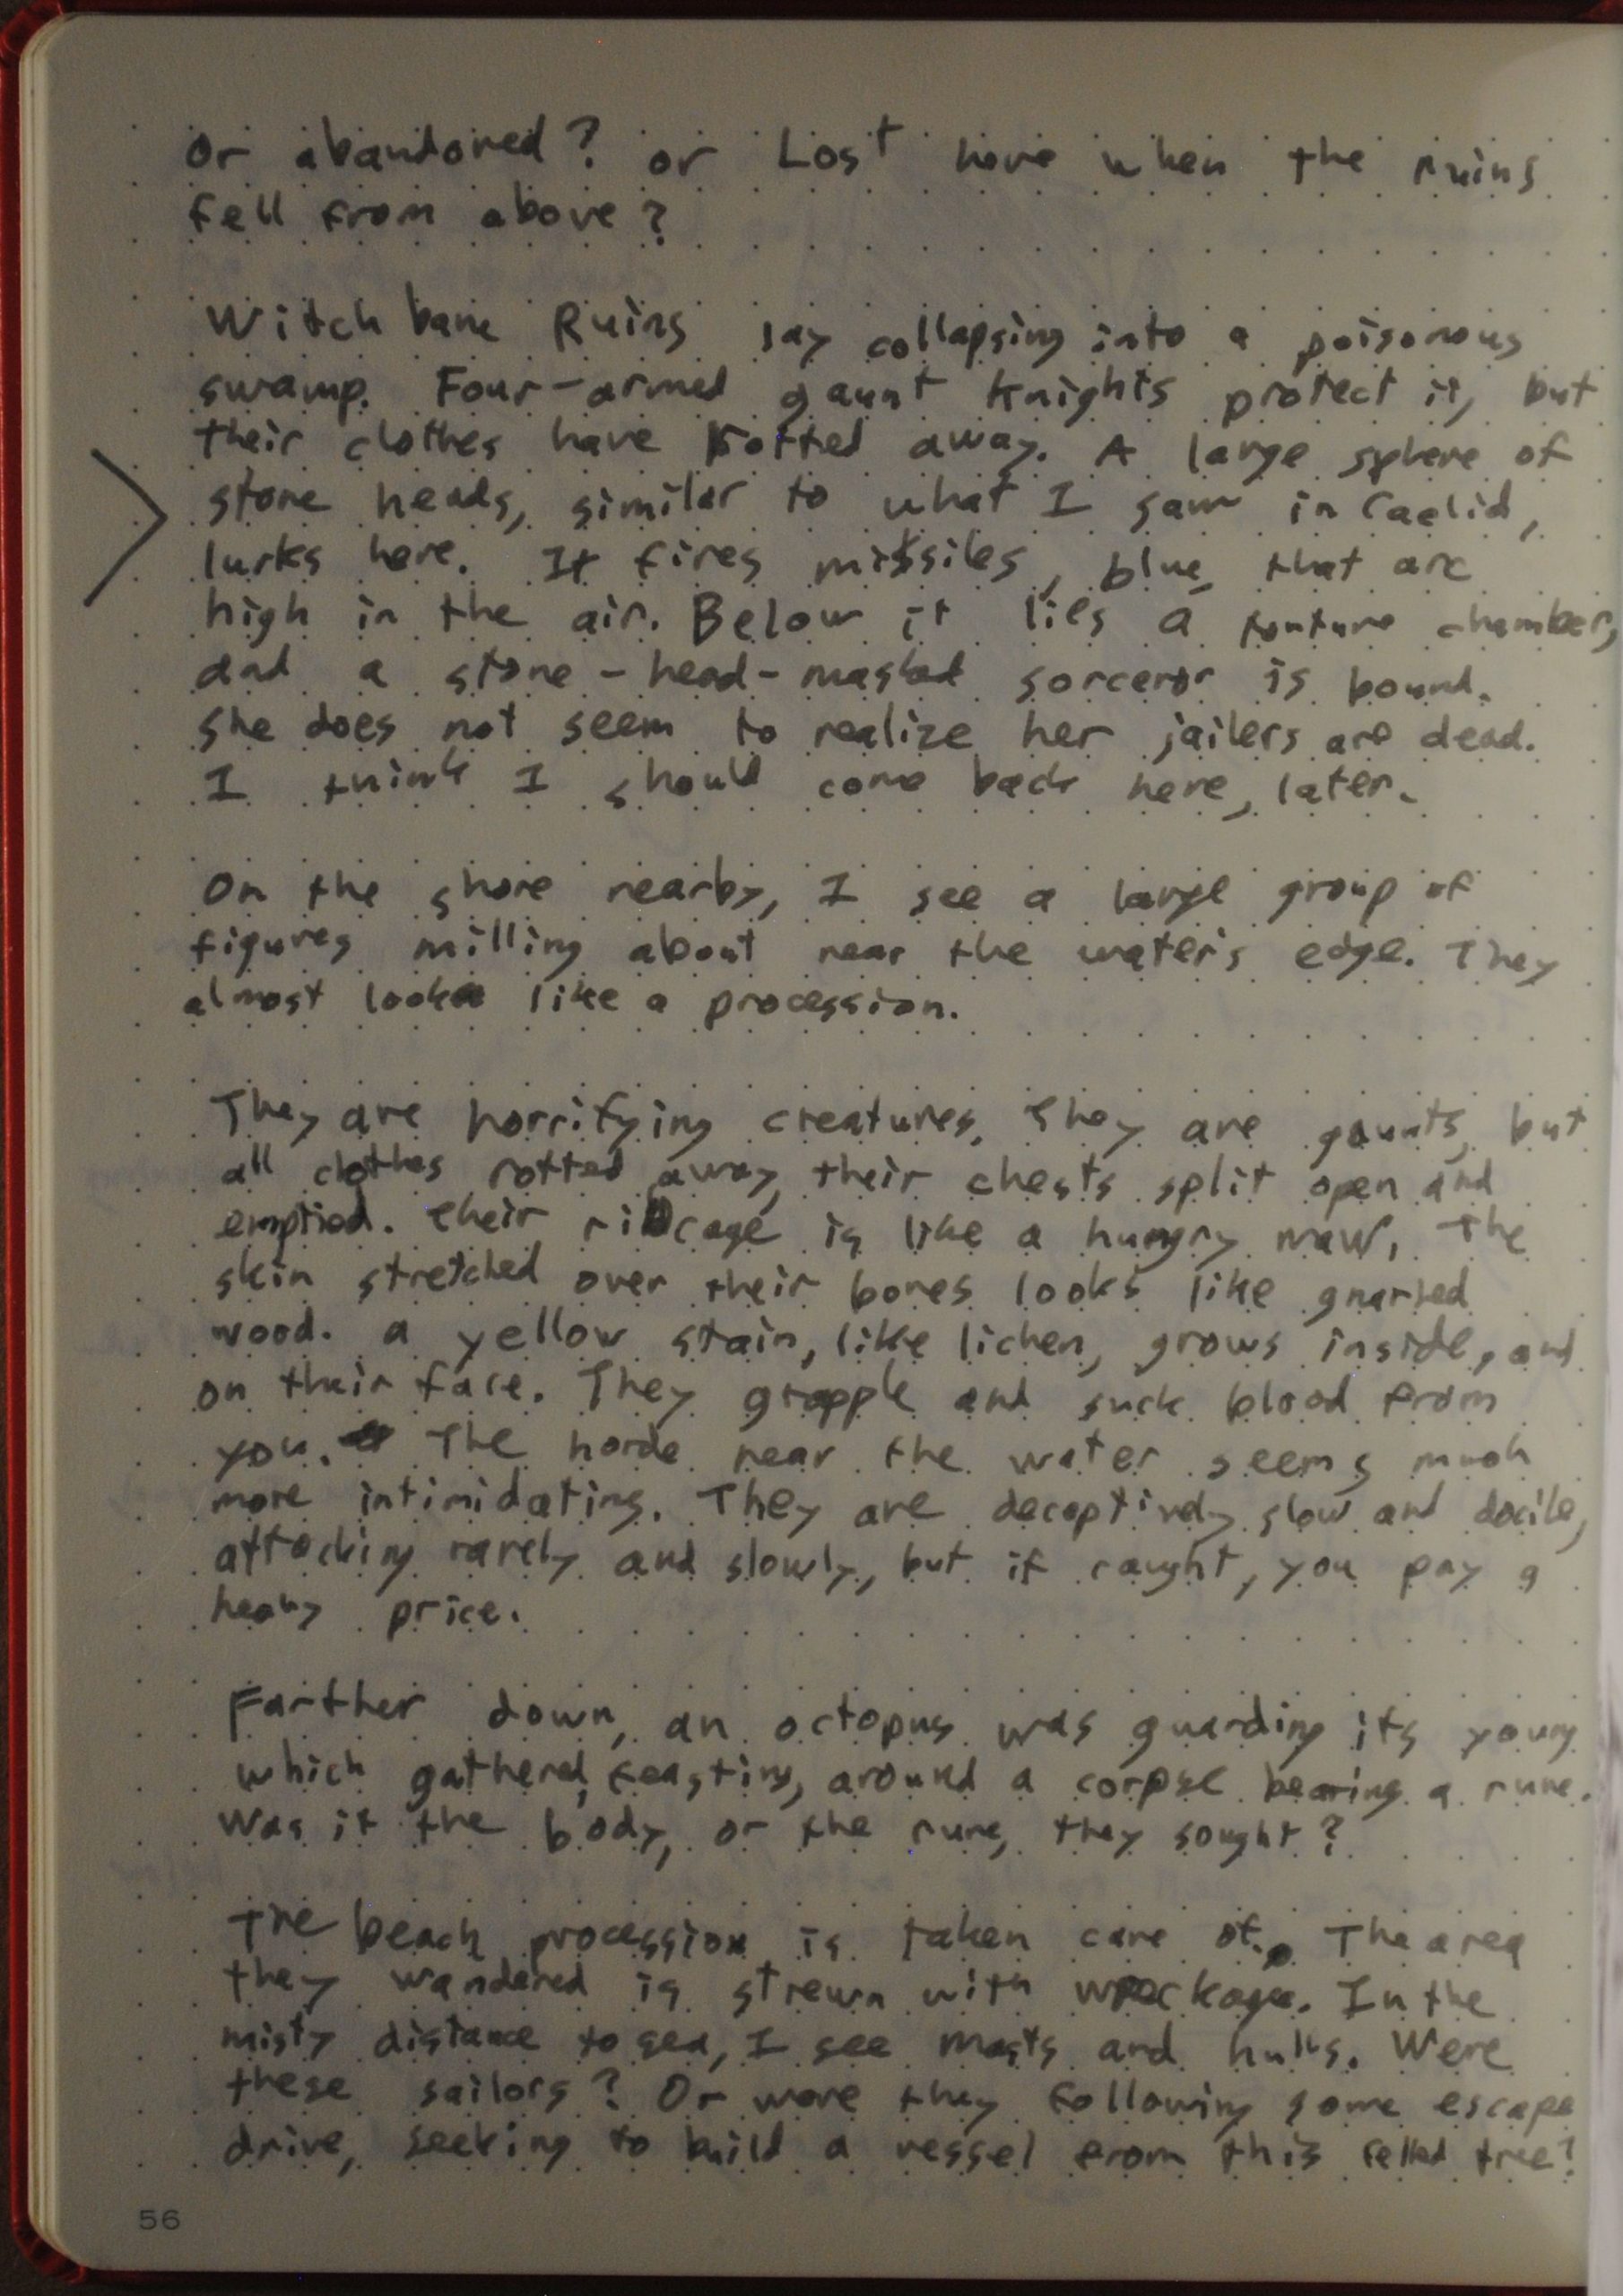 or abandoned? or Lost here when the ruins
fell from above?
Witchbane Ruins lay collapsing into a poisonous
swamp. Four-armed gaunt knights protect it, but
their clothes have rotted away. A large sphere of
stone heads, similar to what I saw in Caelid,
lurks here. It fires missiles, blue, that arc
high in the air. Below it lies a torture chamber,
and a stone-head-masked sorceror is bound.
She does not seem to realize her jailers are dead.
I think I should come back here, later.
On the shore nearby, I see a large group of
figures milling about near the water's edge. They
almost look like a procession.
They are horrifying creatures. They are gaunts, but
all clothes rotted away, their chests split open and
emptied. Their ribcage is like a hungry maw, The
skin stretched over their bones looks like gnarled
wood. a yellow stain, like lichen, grows inside, and
on their face. They grapple and suck blood from
you. The horde near the water seems much
more intimidating. They are deceptively slow and docile,
attacking rarely and slowly, but if caught, you pay a
heavy price.
Farther down, an octopus was guarding its young
which gathered, feasting, around a corpse bearing a rune.
Was it the body, or the rune, they sought?
The beach procession is taken care of. The area
they wandered is strewn with wreckage. In the
misty distance to sea, I see masts and hulls. Were
these sailors? Or were they following some escape
drive, seeking to build a vessel from this felled tree?
56